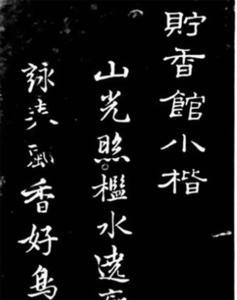 貯香館小楷
山光照檻水遶
詠春風香好鳥